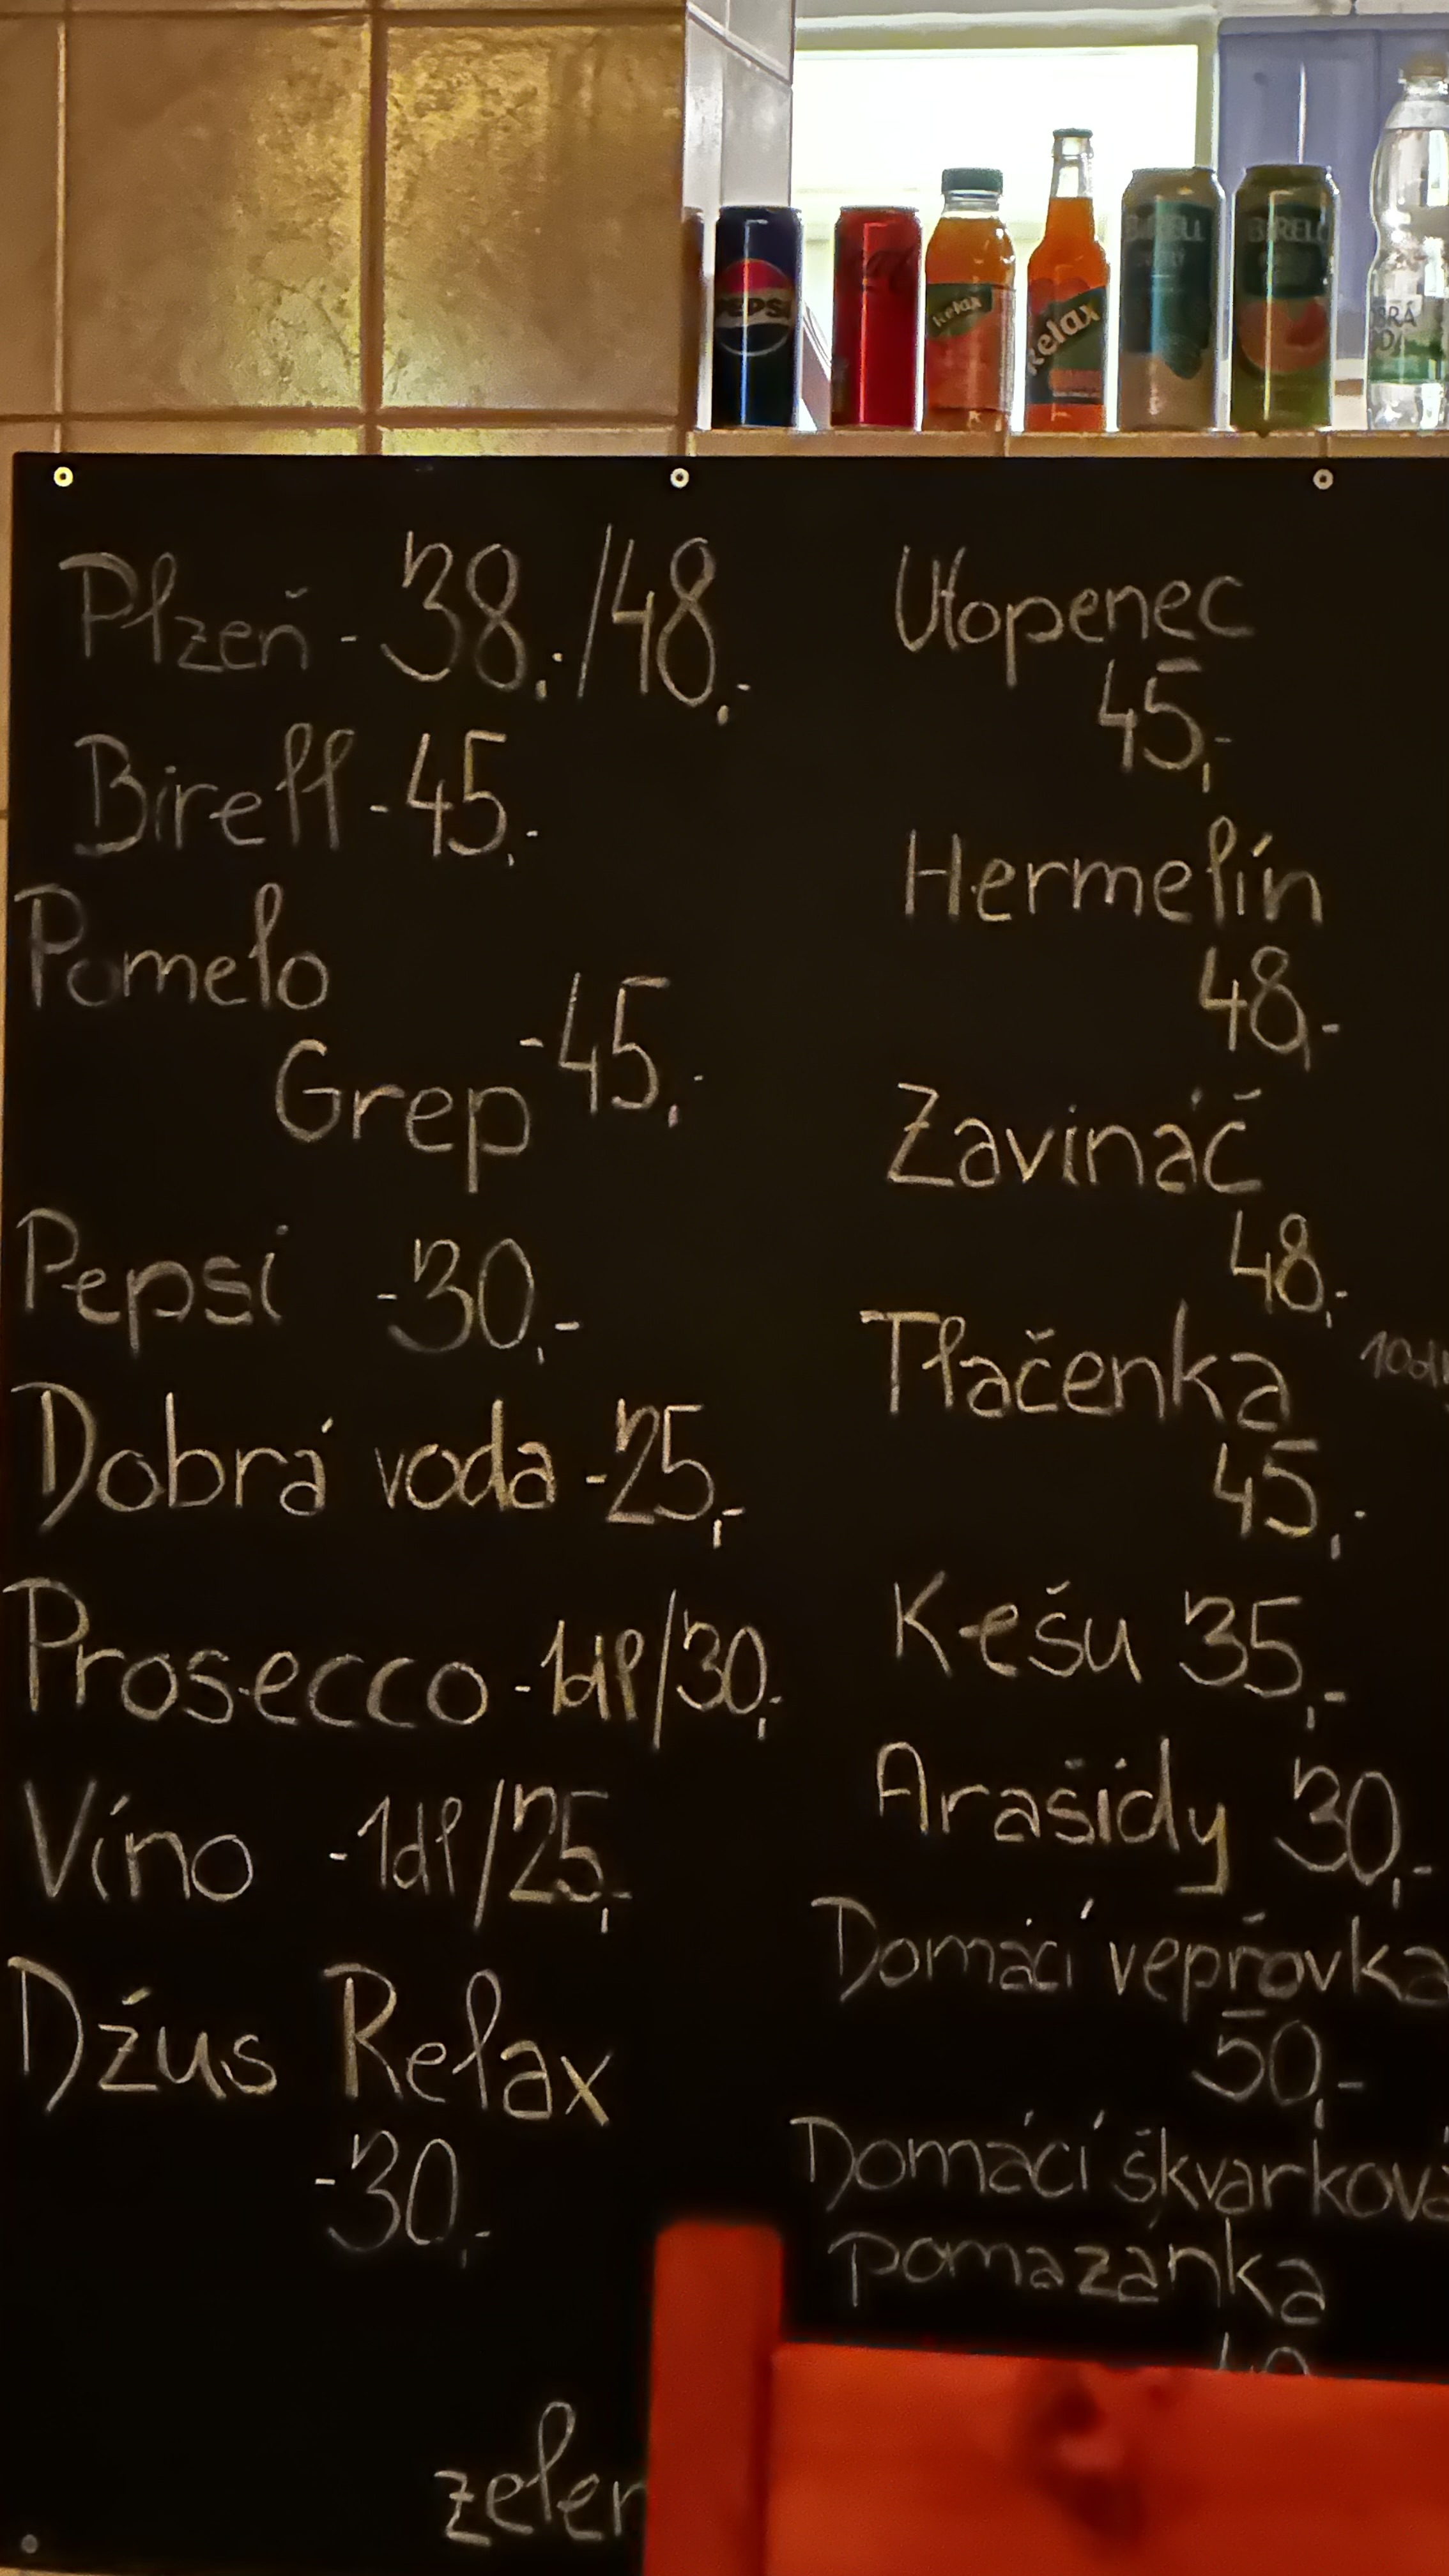 PEPSI
Relax
Relax
BIRELL
BIRELL
DOBRÁ
VODA
Plzeň - 38,-/48,-
Birell - 45,-
Pomelo
Grep - 45,-
Pepsi - 30,-
Dobrá voda - 25,-
Prosecco - 1dl/30,-
Víno - 1dl/25,-
Džus Relax
- 30,-
zelen
Utopenec
45,-
Hermelín
48,-
Zavináč
48,-
Tlačenka
45,-
Kešu 35,-
Arašídy 30,-
Domácí vepřovka
50,-
Domácí škvarková
pomazánka